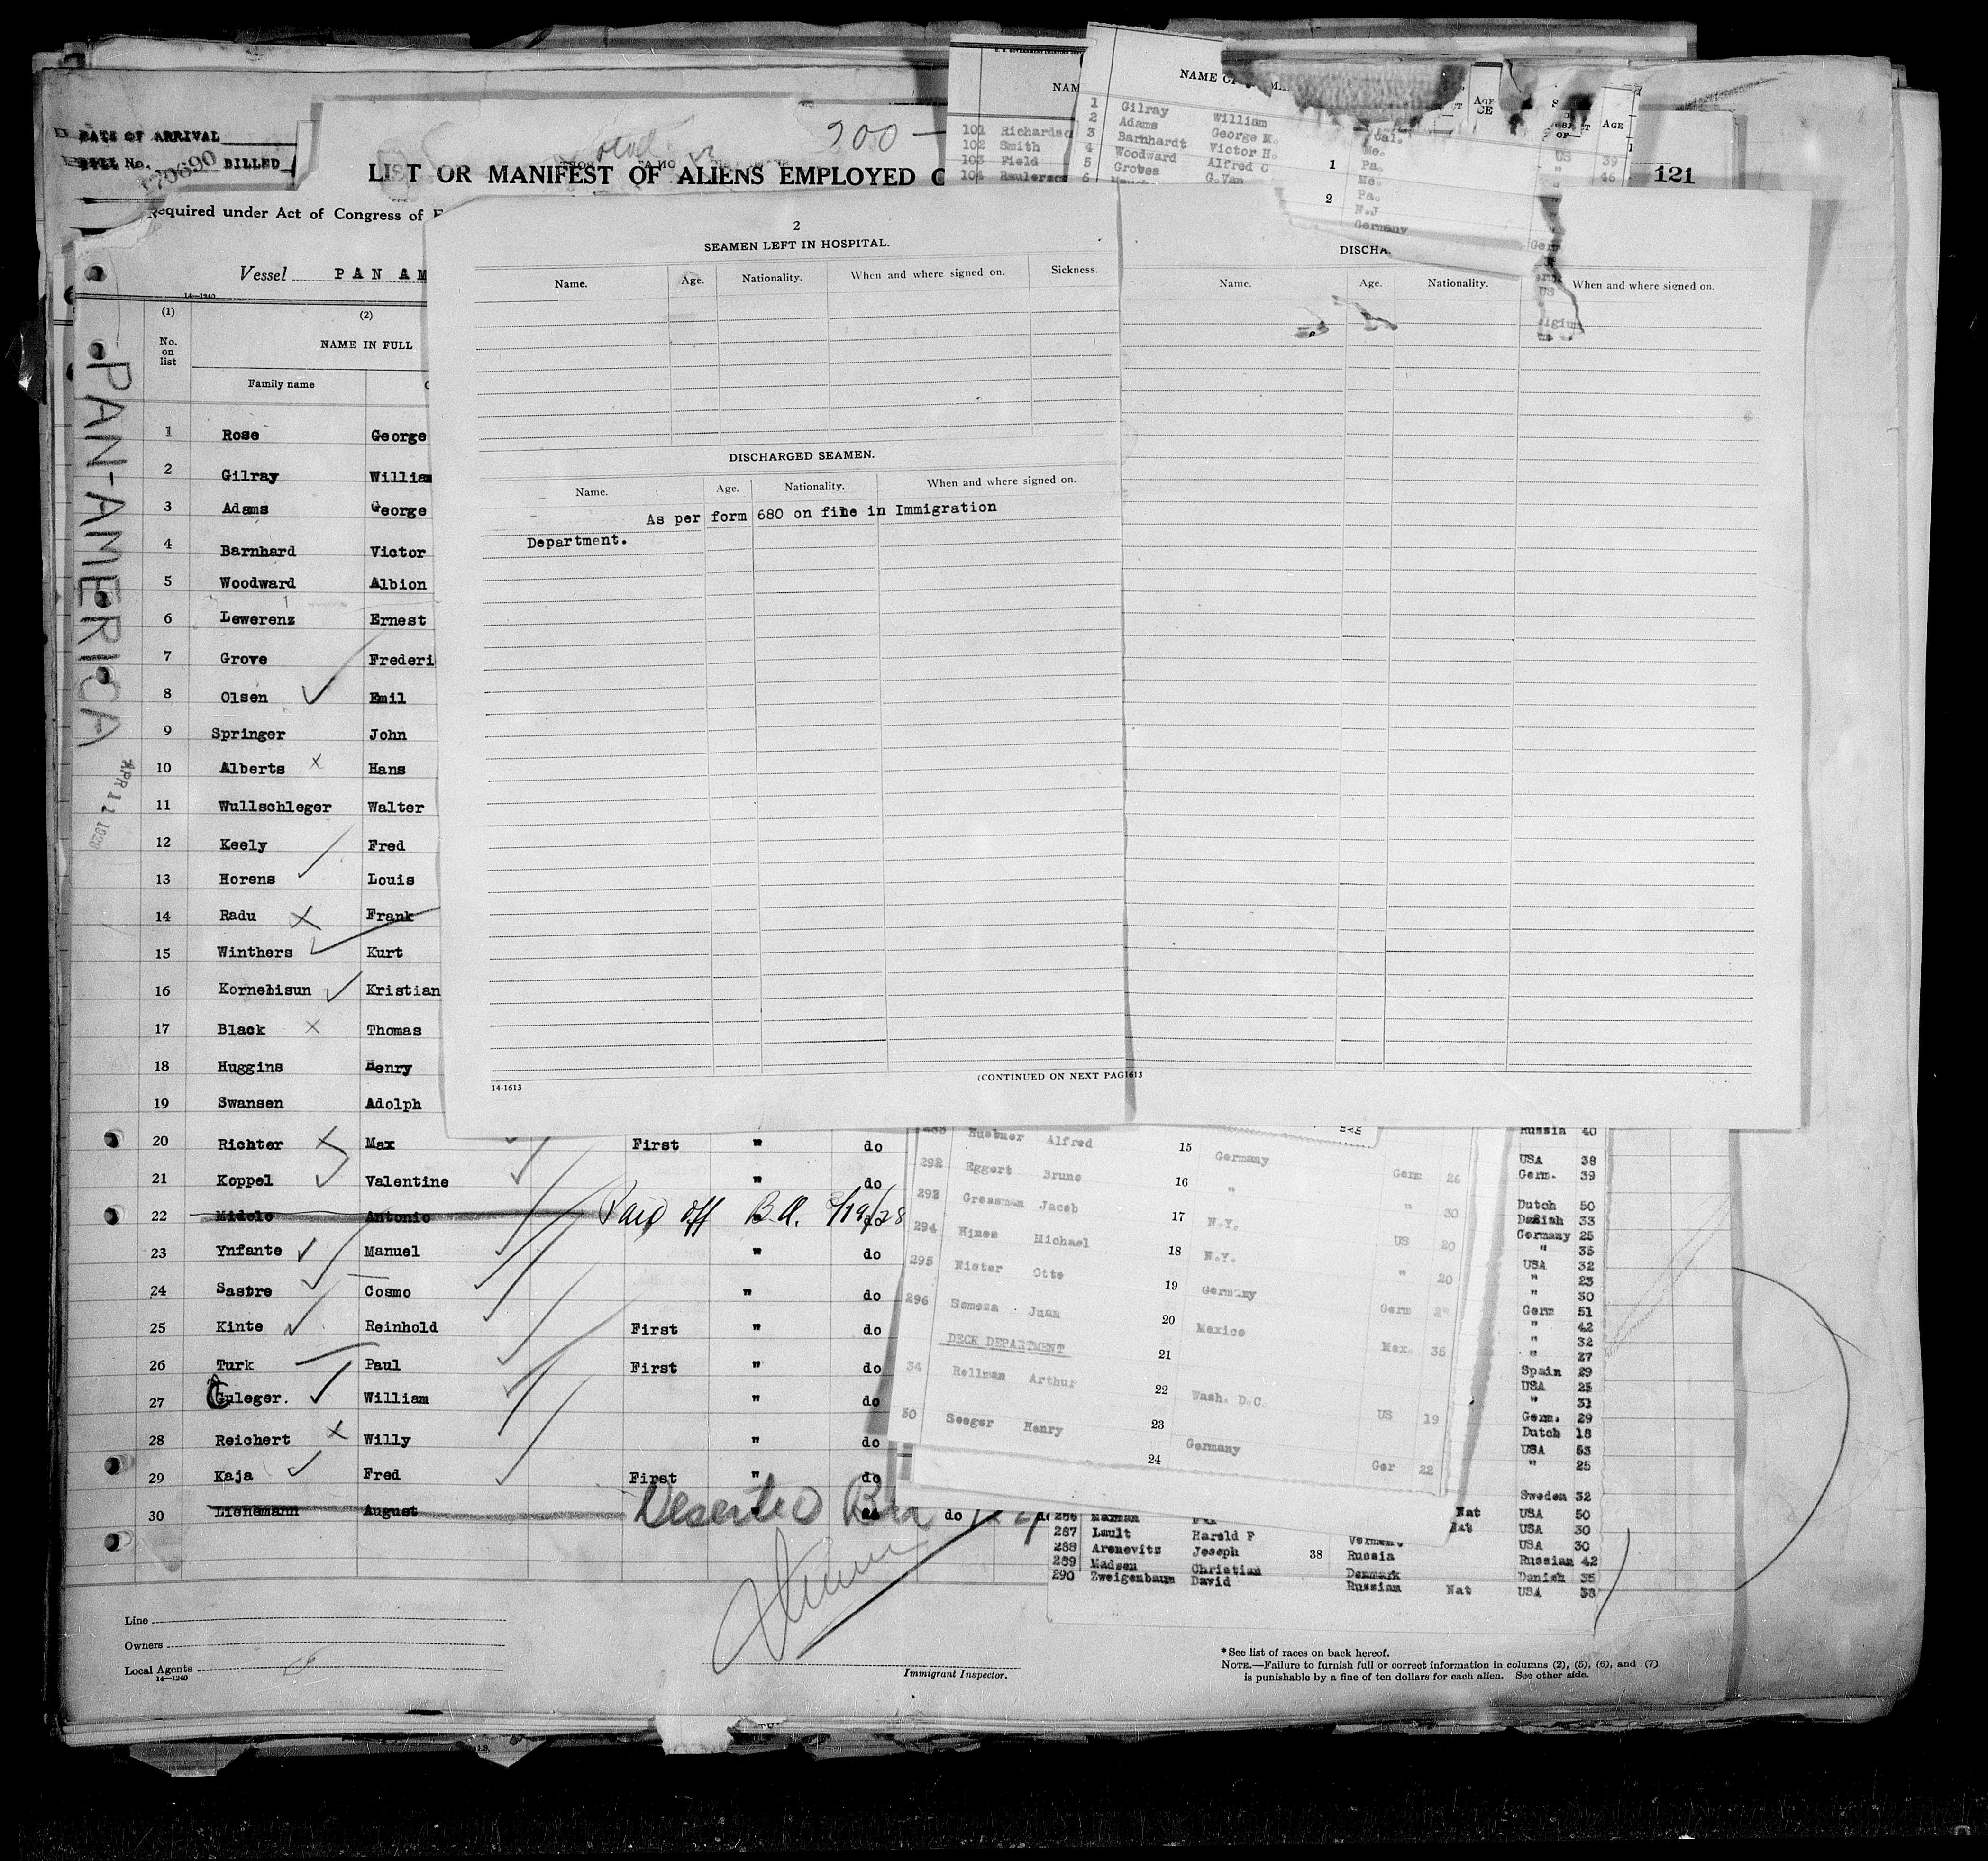 DATE OF ARRIVAL
BILL No. 170690 BILLED
200 —
LIST OR MANIFEST OF ALIENS EMPLOYED O
121
Required under Act of Congress of F
Vessel PAN AM
14—1240
(1) (2)
No. on list
NAME IN FULL
Family name
PAN-AMERICA
APR 11 1928
1 Rose George
2 Gilray William
3 Adams George
4 Barnhard Victor
5 Woodward Albion
6 Lewerenz Ernest
7 Grove Frederi
8 Olsen Emil
9 Springer John
10 Alberts Hans
11 Wullschleger Walter
12 Keely Fred
13 Horens Louis
14 Radu Frank
15 Winthers Kurt
16 Kornelisun Kristian
17 Black Thomas
18 Huggins Henry
19 Swansen Adolph
20 Richter Max First " do
21 Koppel Valentine " do
22 Midolo Antonio Paid off B.A. 3/19/28
23 Ynfante Manuel " do
24 Sastre Cosmo " do
25 Kinte Reinhold First " do
26 Turk Paul First " do
27 Guleger. William " do
28 Reichert Willy " do
29 Kaja Fred First " do
30 Lienemann August Deserted do
Line
Owners
Local Agents
14—1240
Immigrant Inspector.
*See list of races on back hereof.
NOTE.—Failure to furnish full or correct information in columns (2), (5), (6), and (7)
is punishable by a fine of ten dollars for each alien. See other side.
NAM
101 Richardso
102 Smith
103 Field
104 Raulerso
NAME OF
AGE
1 Gilray William Cal.
2 Adams George M. Me.
3 Barnhardt Victor H. Pa.
4 Woodward Alfred C Me.
5 Groves G.Van Pa.
6 N.J
Germany
1
2
AGE
US 39
" 46
2
SEAMEN LEFT IN HOSPITAL.
Name. Age. Nationality. When and where signed on. Sickness.
DISCHARGED SEAMEN.
Name. Age. Nationality. When and where signed on.
As per form 680 on file in Immigration
Department.
14-1613
(CONTINUED ON NEXT PAG
1613
DISCHA
Name. Age. Nationality. When and where signed on.
Huebner Alfred 15 Germany Germ 26
292 Eggert Bruno 16 " " 30
293 Gressman Jacob 17 N.Y. US 20
294 Himes Michael 18 N.Y. " 20
295 Nister Otto 19 Germany Germ
296 Someza Juan 20 Mexico Mex. 35
DECK DEPARTMENT 21
34 Rellman Arthur 22 Wash. D.C. US 19
50 Seeger Henry 23 Germany Ger 22
24
Russia 40
USA 38
Germ. 39
Dutch 50
Danish 33
Germany 25
" 35
USA 32
" 23
" 30
Germ 51
" 42
" 32
" 27
Spain 29
USA 25
" 31
Germ. 29
Dutch 18
USA 53
" 25
Sweden 32
Nat USA 50
287 Lault Harold F Vermont Nat USA 30
USA 30
288 Arenovitz Joseph 38 Russia Russian 42
289 Madsen Christian Denmark Danish 35
290 Zweigenbaum David Russian Nat USA 38